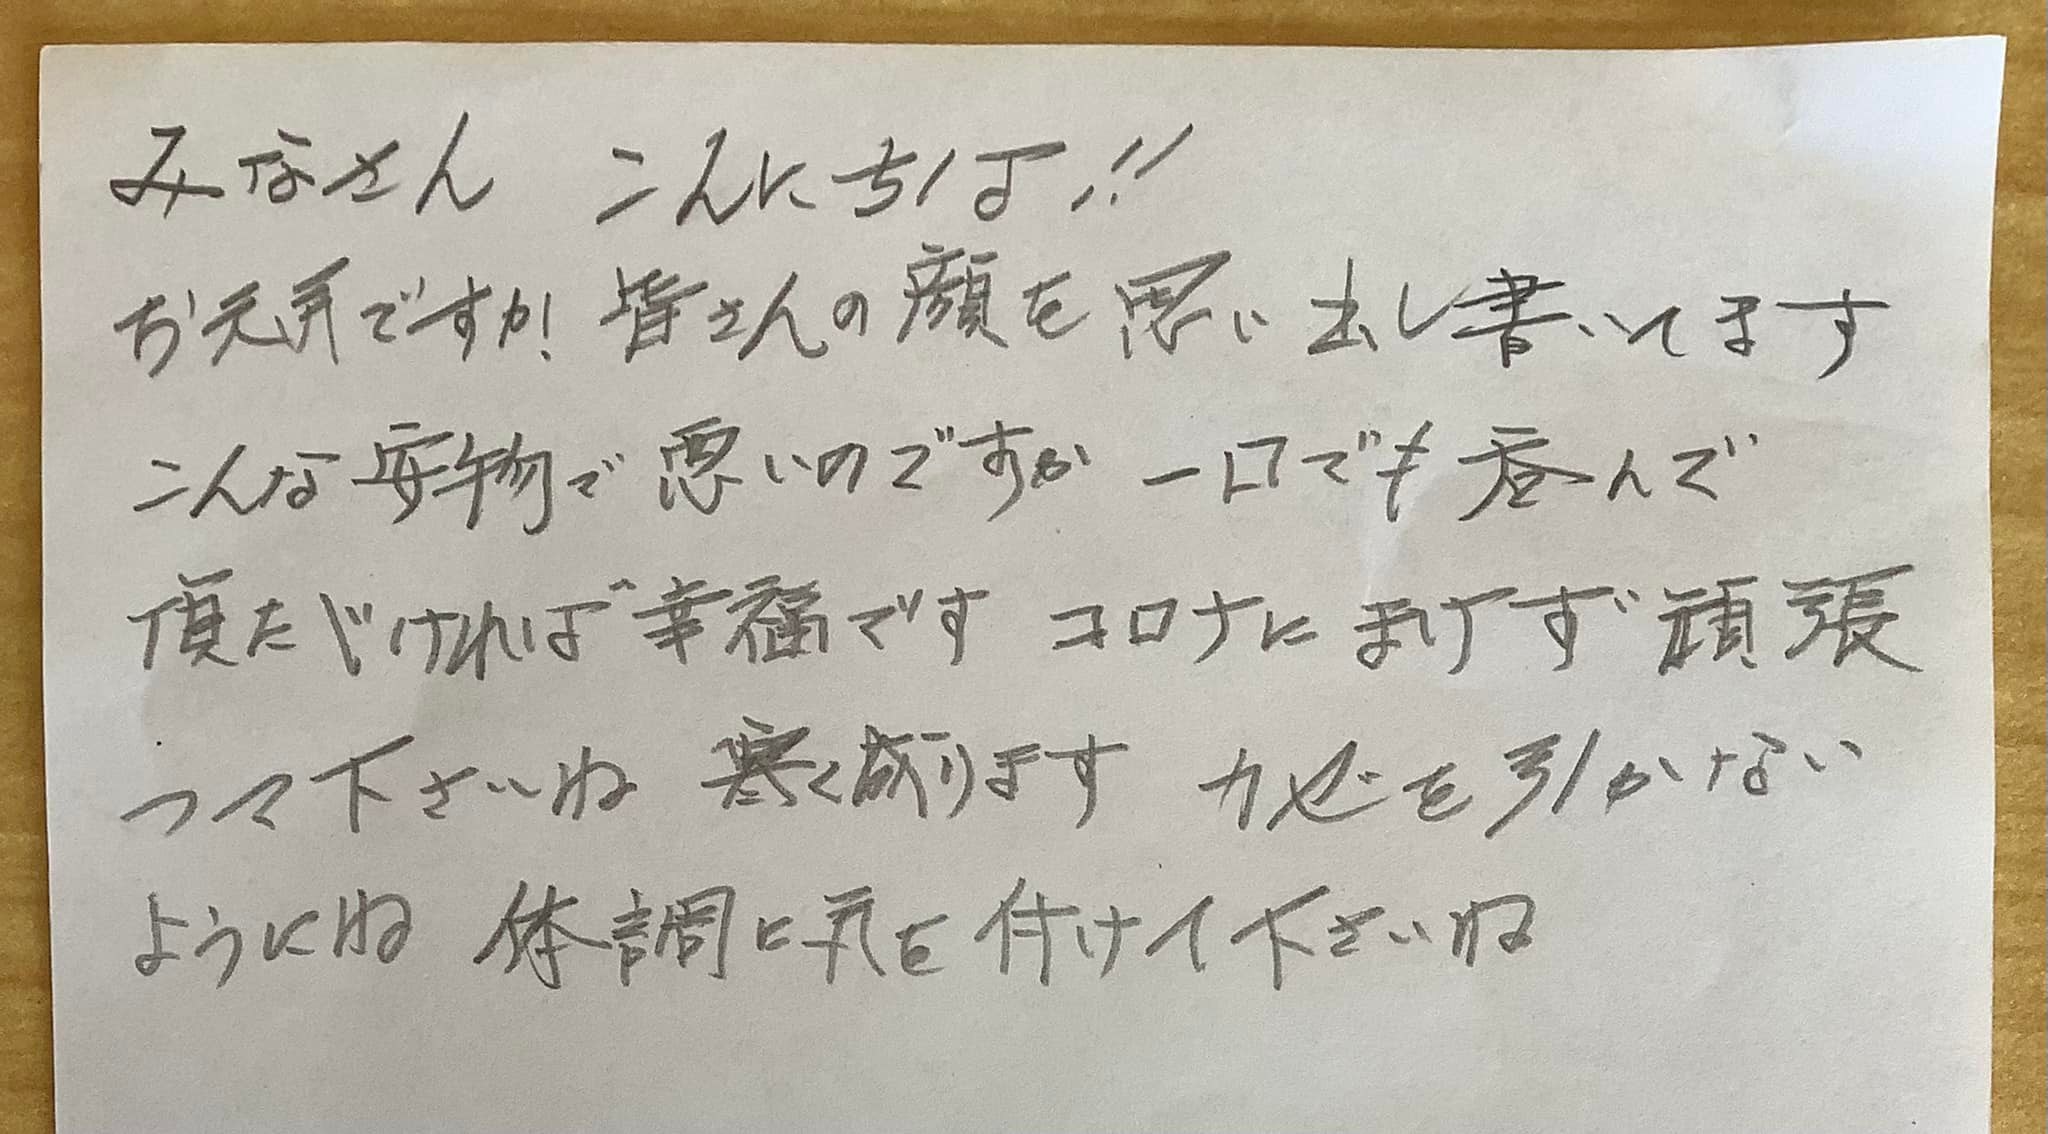 みなさん こんにちは!!
お元気ですか! 皆さんの顔を思い出し書いてます
こんな安物で悪いのですが 一口でも呑んで
頂だければ幸福です コロナにまけず頑張
って下さいね 寒く成ります カゼを引かない
ようにね 体調に気を付けて下さいね